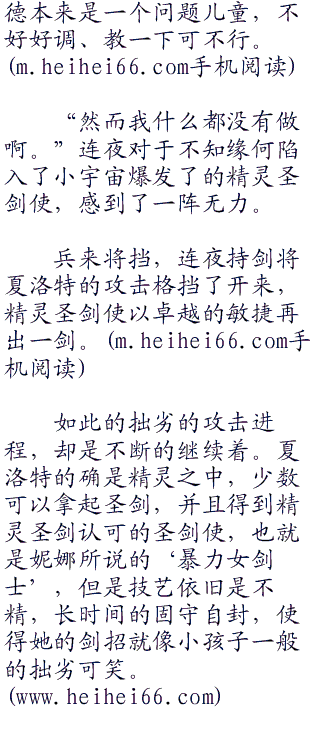 德本来是一个问题儿童，不
好好调、教一下可不行。
(m.heihei66.com手机阅读)
“然而我什么都没有做
啊。”连夜对于不知缘何陷
入了小宇宙爆发了的精灵圣
剑使，感到了一阵无力。
兵来将挡，连夜持剑将
夏洛特的攻击格挡了开来，
精灵圣剑使以卓越的敏捷再
出一剑。(m.heihei66.com手
机阅读)
如此的拙劣的攻击进
程，却是不断的继续着。夏
洛特的确是精灵之中，少数
可以拿起圣剑，并且得到精
灵圣剑认可的圣剑使，也就
是妮娜所说的‘暴力女剑
士’，但是技艺依旧是不
精，长时间的固守自封，使
得她的剑招就像小孩子一般
的拙劣可笑。
(www.heihei66.com)